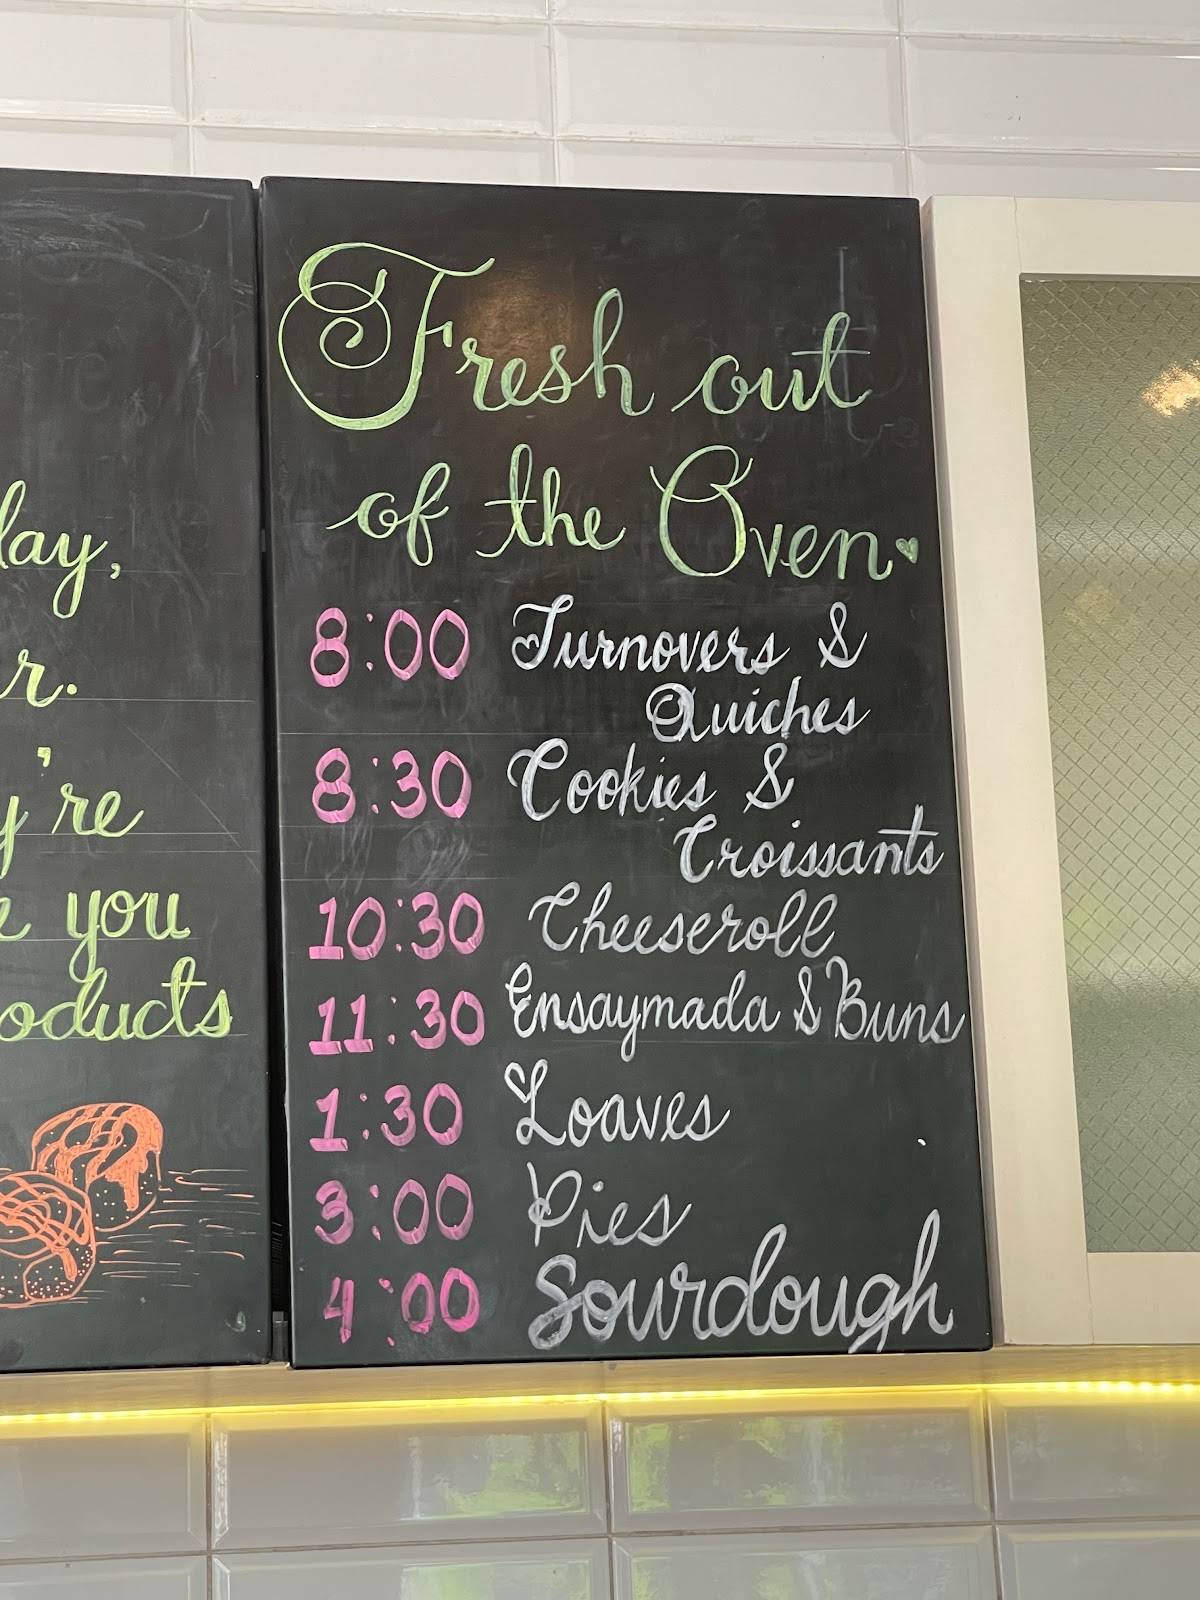 lay,
r.
y're
e you
oducts
Fresh out
of the Oven
8:00 Turnovers &
Quiches
8:30 Cookies &
Croissants
10:30 Cheeseroll
11:30 Ensaymada & Buns
1:30 Loaves
3:00 Pies
4:00 Sourdough